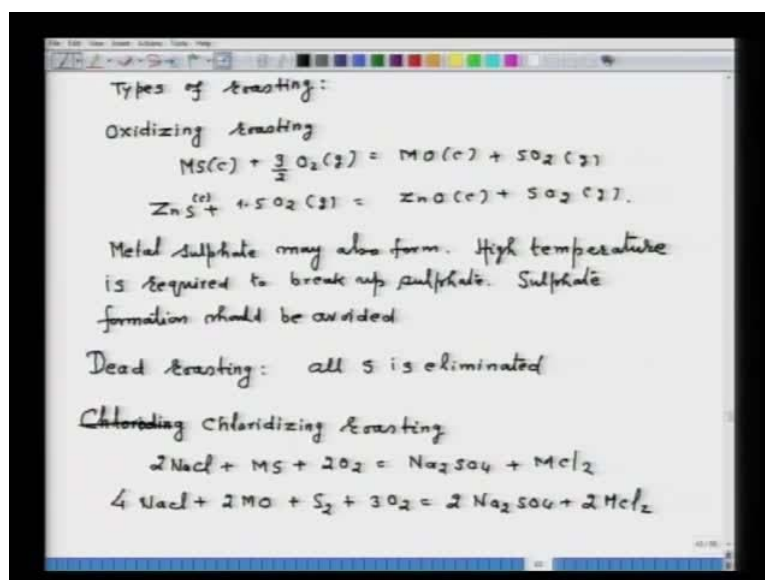 Types of roasting:
Oxidizing roasting
MS(c) + 3/2 O2(g) = MO(c) + SO2(g)
ZnS(c) + 1.5O2(g) = ZnO(c) + SO2(g).
Metal sulphate may also form. High temperature
is required to break up sulphate. Sulphate
formation should be avoided
Dead roasting: all S is eliminated
Chloriding Chloridizing roasting
2NaCl + MS + 2O2 = Na2SO4 + MCl2
4 NaCl + 2MO + S2 + 3O2 = 2 Na2SO4 + 2 MCl2